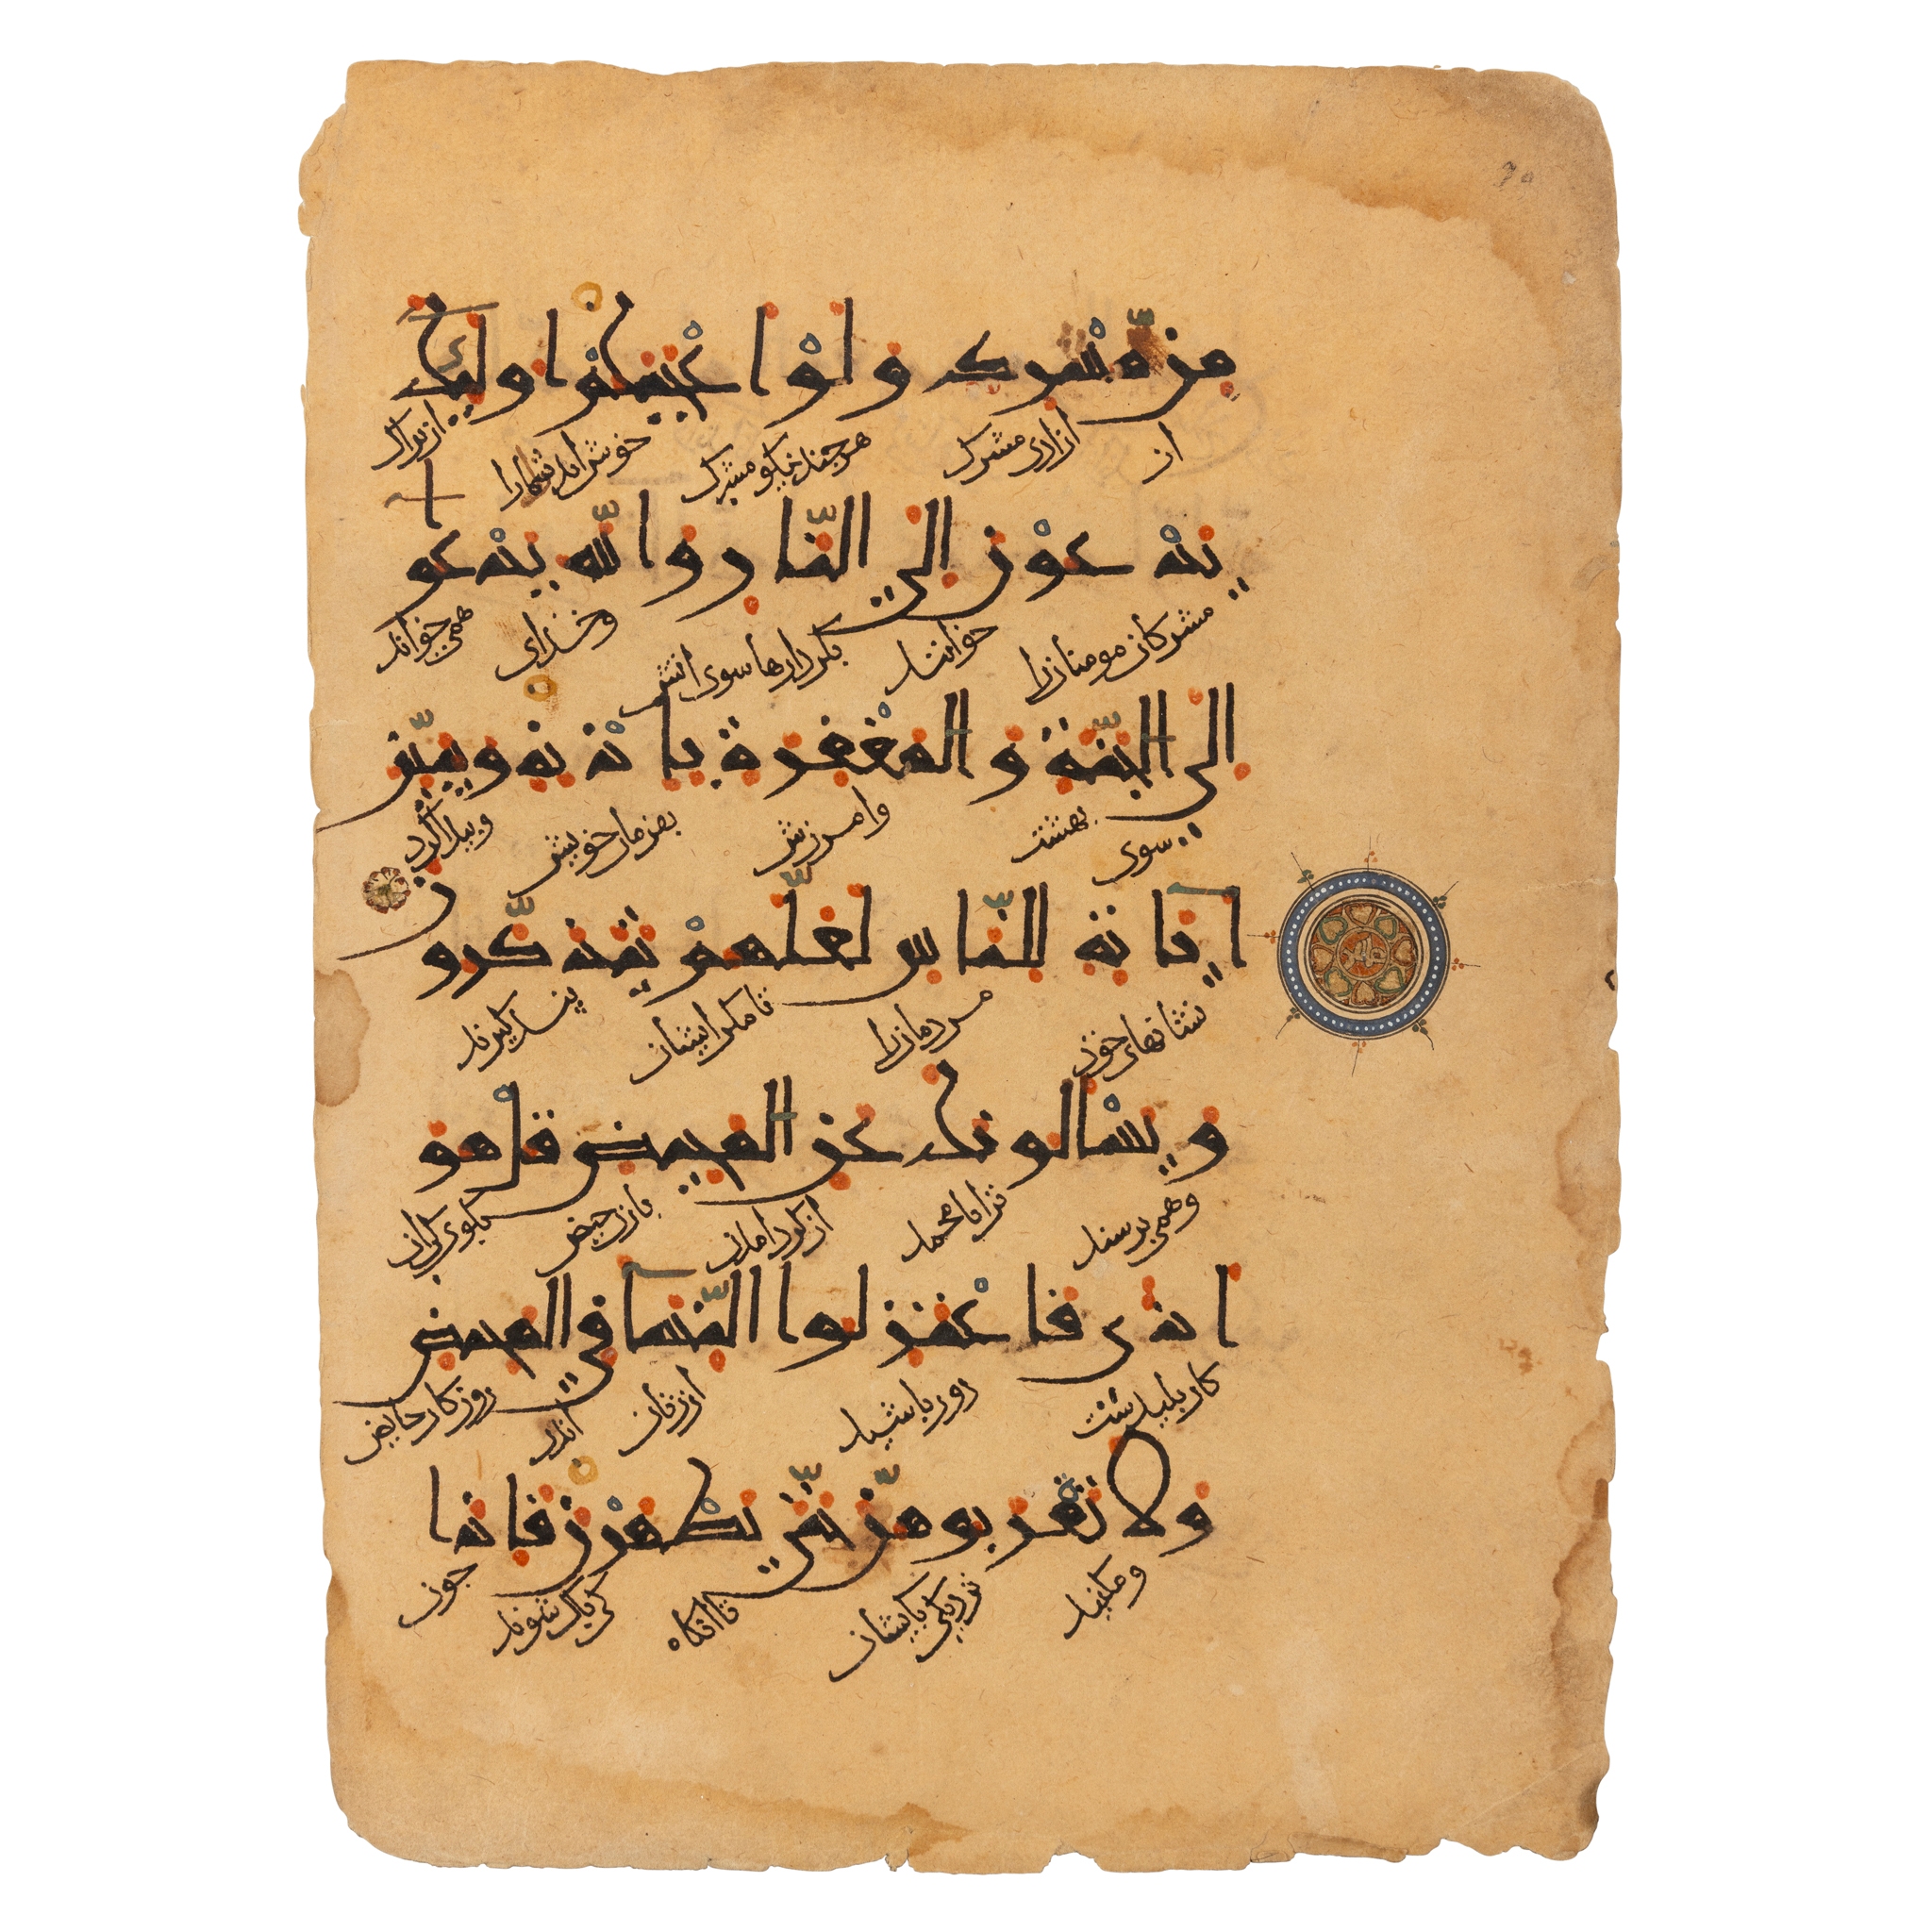 من مشرك ولو اعجبكم اوليك
از ازادى مشرك هرچند نيكو مشرك خوش ايد شمارا
يدعون الى النار والله يدعو
مشركان مومنانرا خوانند بكردارها سوى اتش وخداى همى خواند
الى الجنة والمغفرة باذنه ويبين
سوى بهشت وامرزش بفرمان خويش وپيدا كرد
اياته للناس لعلهم يتذكرو
ن
نشانهاى خوذ مردمانرا تا مكر ايشان پند كيرند
ويسالونك عن المحيض قل هو
وهمى پرسند ترا يا محمد از كرد امدن با زن حيض بكوى
اذى فاعتزلوا النسا في المحيض
كار پليد شت دور باشيد از زنان اندر روزكار حايض
ولا تقربوهن حتى يطهرن فاذا
ومكنيد نزديكى بايشان تا انكاه كى پاك شوند چون